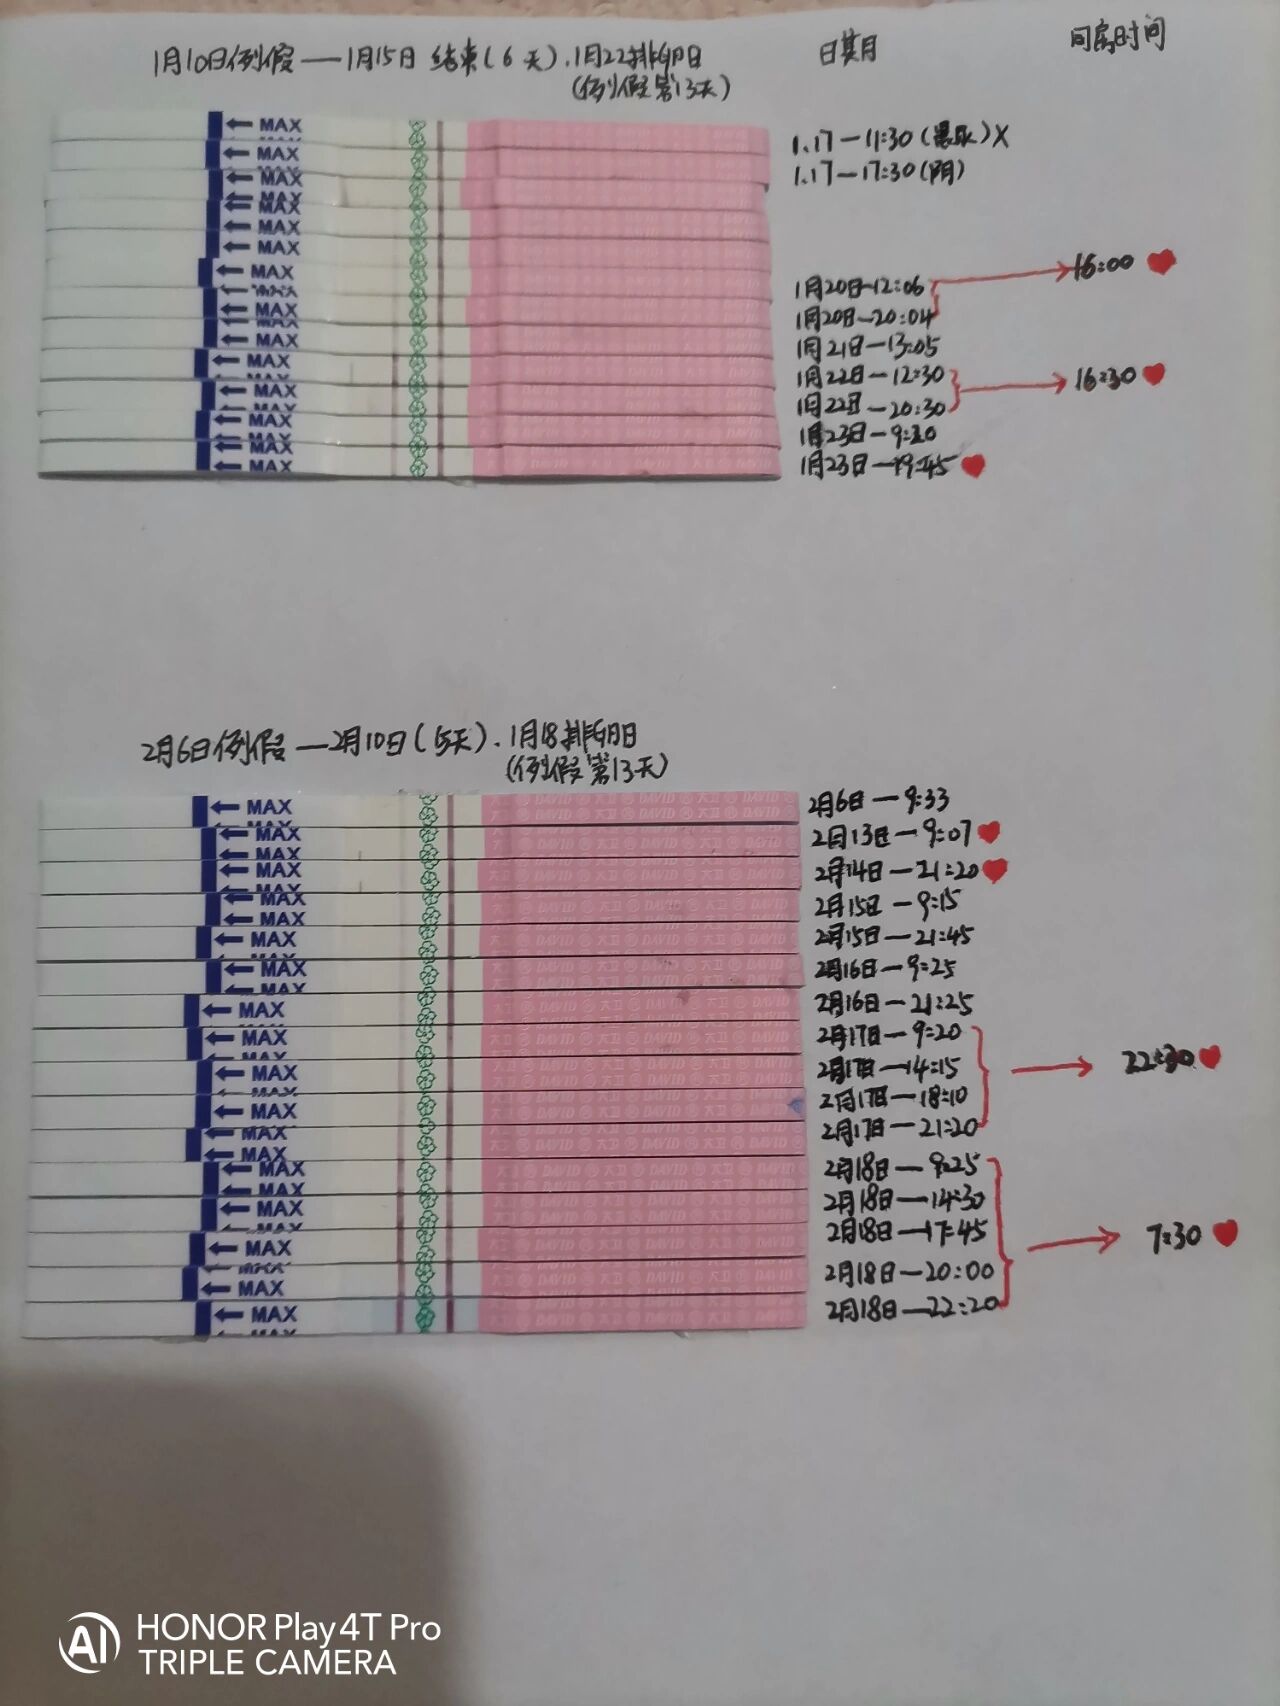 1月10日例假—1月15日 结束(6天).1月22排卵日
(例假第13天)
日期 同房时间
MAX
MAX
MAX
MAX
MAX
MAX
MAX
MAX
MAX
MAX
MAX
MAX
MAX
1.17—11:30(晨尿)X
1.17—17:30(阴)
1月20日—12:06
16:00
1月20日—20:04
1月21日—13:05
1月22日—12:30
16:30
1月22日—20:30
1月23日—9:20
1月23日—19:45
2月6日例假—2月10日(5天).1月18排卵日
(例假第13天)
MAX DAVID 大卫 DAVID 大卫 DAVID 大卫 DAVID
2月6日—9:33
MAX
2月13日—9:07
MAX
2月14日—21:20
MAX
2月15日—9:15
MAX
2月15日—21:45
MAX
2月16日—9:25
MAX
2月16日—21:25
MAX
2月17日—9:20
MAX
2月17日—14:15
22:30
MAX
2月17日—18:10
MAX
2月17日—21:20
MAX
2月18日—9:25
MAX
2月18日—14:30
MAX
2月18日—17:45
7:30
MAX
2月18日—20:00
MAX
2月18日—22:20
AI HONOR Play4T Pro
TRIPLE CAMERA